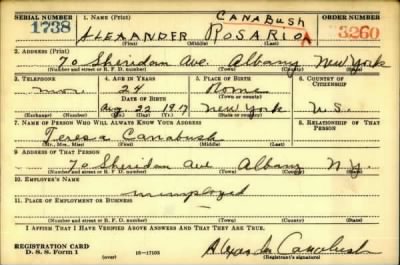 SERIAL NUMBER 1. NAME (Print) CANABUSH ORDER NUMBER
1738 ALEXANDER ROSARIO 3260
(First) (Middle) (Last)
2. ADDRESS (Print)
70 Sheridan Ave. Albany New York
(Number and street or R. F. D. number) (Town) (County) (State)
3. TELEPHONE 4. AGE IN YEARS 5. PLACE OF BIRTH 6. COUNTRY OF CITIZENSHIP
none 24 Rome
DATE OF BIRTH (Town or county)
Aug. 22 1917 New York U.S.
(Exchange) (Number) (Mo.) (Day) (Yr.) (State or country)
7. NAME OF PERSON WHO WILL ALWAYS KNOW YOUR ADDRESS 8. RELATIONSHIP OF THAT PERSON
Teresa Canabush
(Mr., Mrs., Miss) (First) (Middle) (Last)
9. ADDRESS OF THAT PERSON
70 Sheridan Ave Albany N.Y.
(Number and street or R. F. D. number) (Town) (County) (State)
10. EMPLOYER'S NAME
unemployed
11. PLACE OF EMPLOYMENT OR BUSINESS
(Number and street or R. F. D. number) (Town) (County) (State)
I AFFIRM THAT I HAVE VERIFIED ABOVE ANSWERS AND THAT THEY ARE TRUE.
REGISTRATION CARD
D. S. S. Form 1 (over) 16—17105 Alexander Canabush
(Registrant's signature)